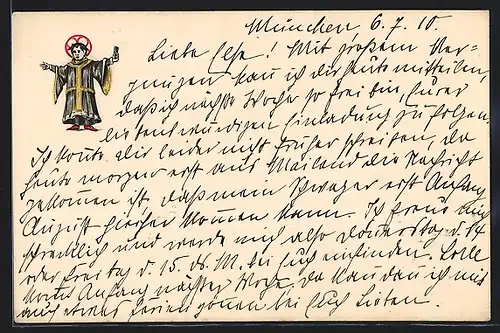 München 6.7.10.
Liebe Else! Mit großem Ver-
gnügen kann ich dir heute mitteilen,
daß ich nächste Woche so frei bin, Eurer
liebenswürdigen Einladung zu folgen.
Ich konnte dir leider nicht früher schreiben, da
heute morgen erst aus Mailand die Nachricht
gekommen ist, daß mein Schwager erst Anfang
August hierher kommen kann. Ich freue mich
schrecklich und werde mich also Donnerstag d. 14.
oder Freitag d. 15. ds. M. bei Euch einfinden.
Anfang nächster Woche, da kann dann ich mir
auch etwas Ferien gönnen bei Euch Lieben.